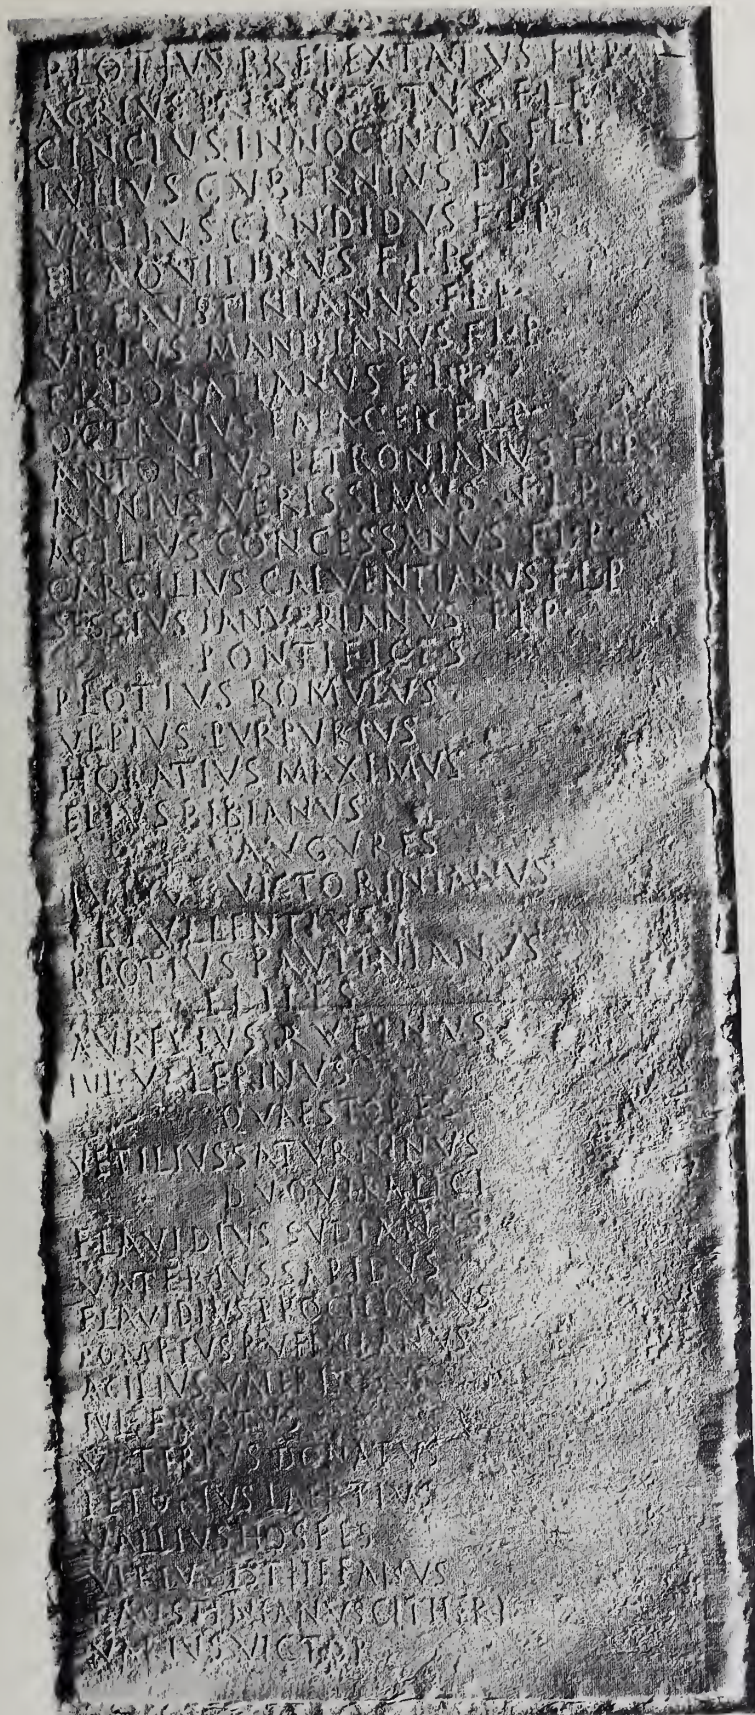 PLOTIVS PRETEXTATVS FLP
AGRIVS FLP
CINCIVS INNOCENTIVS FLP
IVLIVS GVBERNIVS FLP
VALLIVS CANDIDVS FLP
FL AQVILINVS FLP
FL FAVSTINIANVS FLP
VIRIVS MANILIANVS FLP
FL DONATIANVS FLP
OCTAVIVS FLP
ANTONIVS PETRONIANVS FLP
ANNIVS VERISSIMVS FLP
ACILIVS CONCESSANVS FLP
CARGILIVS CALVENTIANVS FLP
SESSIVS IANVARIANVS FLP
PONTIFICES
PLOTIVS ROMVLVS
VLPIVS PVRPVRIVS
HORATIVS MAXIMVS
BIBIANVS
AVGVRES
IVLIVS VICTORINIANVS
PLOTIVS PAVLINIANVS
AVRELIVS RVFINVS
IVL VALERINVS
QVAESTORES
VETILIVS SATVRNINVS
DVOVIRALICI
FLAVIDIVS
VATERIVS SAPIDVS
FLAVIDIVS
ACILIVS
IVL
VATERIVS DONATVS
VALLIVS HOSPES
FAVSTINIANVS CITHERI
VICTOR